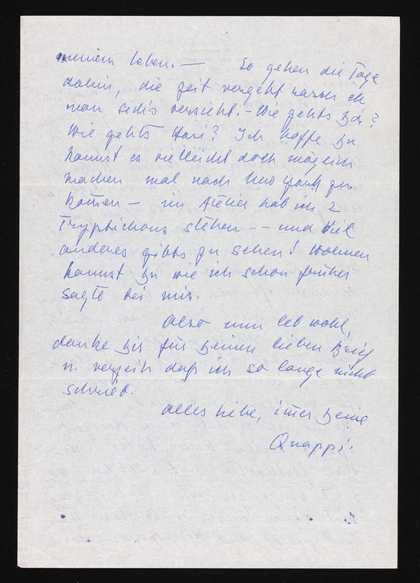 meinem Leben. — So gehen die Tage
dahin, die Zeit vergeht rasch eh
man sich's versieht. – Wie gehts Dir?
Wie gehts Marie? Ich hoffe Du
kannst es vielleicht doch möglich
machen mal nach New York zu
kommen — im Atelier hab ich 2
Tryptichons stehen -- und viel
anderes gibts zu sehen! Wohnen
kannst Du wie ich schon früher
sagte bei mir.
Also nun leb wohl,
danke Dir für Deinen lieben Brief
u. verzeih daß ich so lange nicht
schrieb.
Alles Liebe, immer Deine
Quappi.